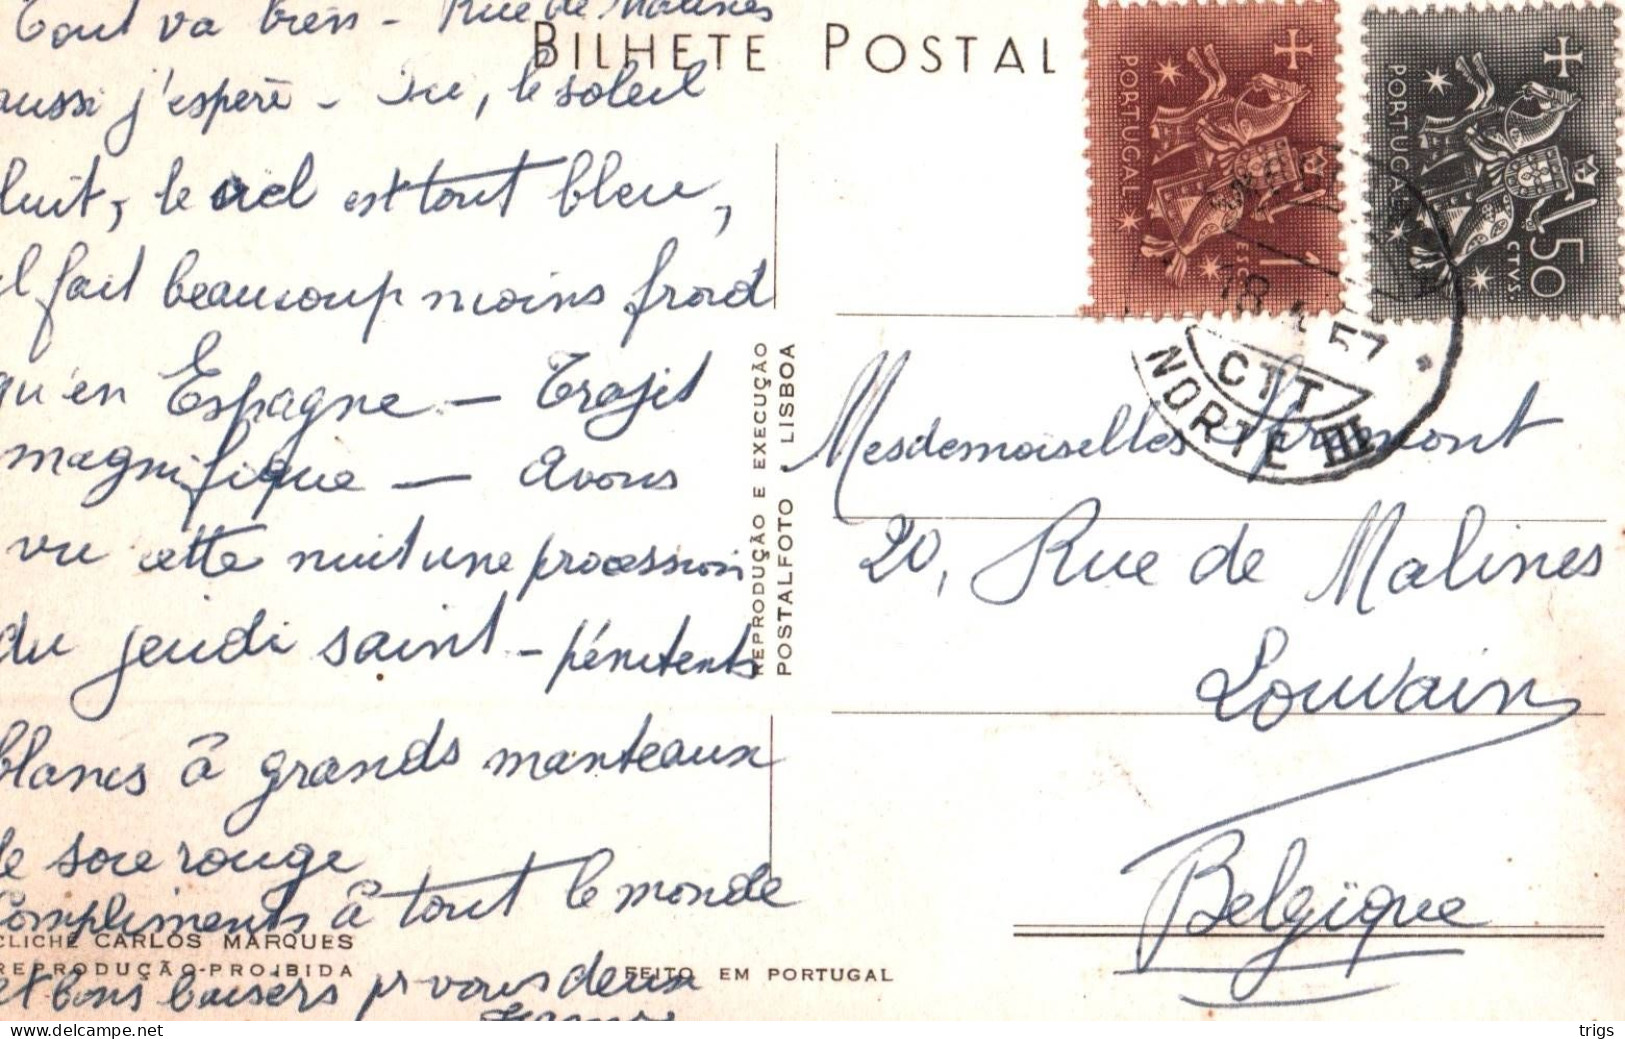 Tout va bien - Rue de Malines
aussi j'espère - Ici, le soleil
luit, le ciel est tout bleu,
il fait beaucoup moins froid
qu'en Espagne - Trajet
magnifique - Avons
vu cette nuit une procession
du jeudi saint - pénitents
blancs à grands manteaux
de soie rouge
Compliments à tout le monde
et bons baisers pr vous deux
BILHETE POSTAL
REPRODUÇÃO E EXECUÇÃO
POSTALFOTO LISBOA
CLICHÉ CARLOS MARQUES
REPRODUÇÃO-PROIBIDA
FEITO EM PORTUGAL
PORTUGAL
1 ESC.
PORTUGAL
50 CTVS.
18 57
CTT
NORTE III
Mesdemoiselles
20, Rue de Malines
Louvain
Belgique
trigs